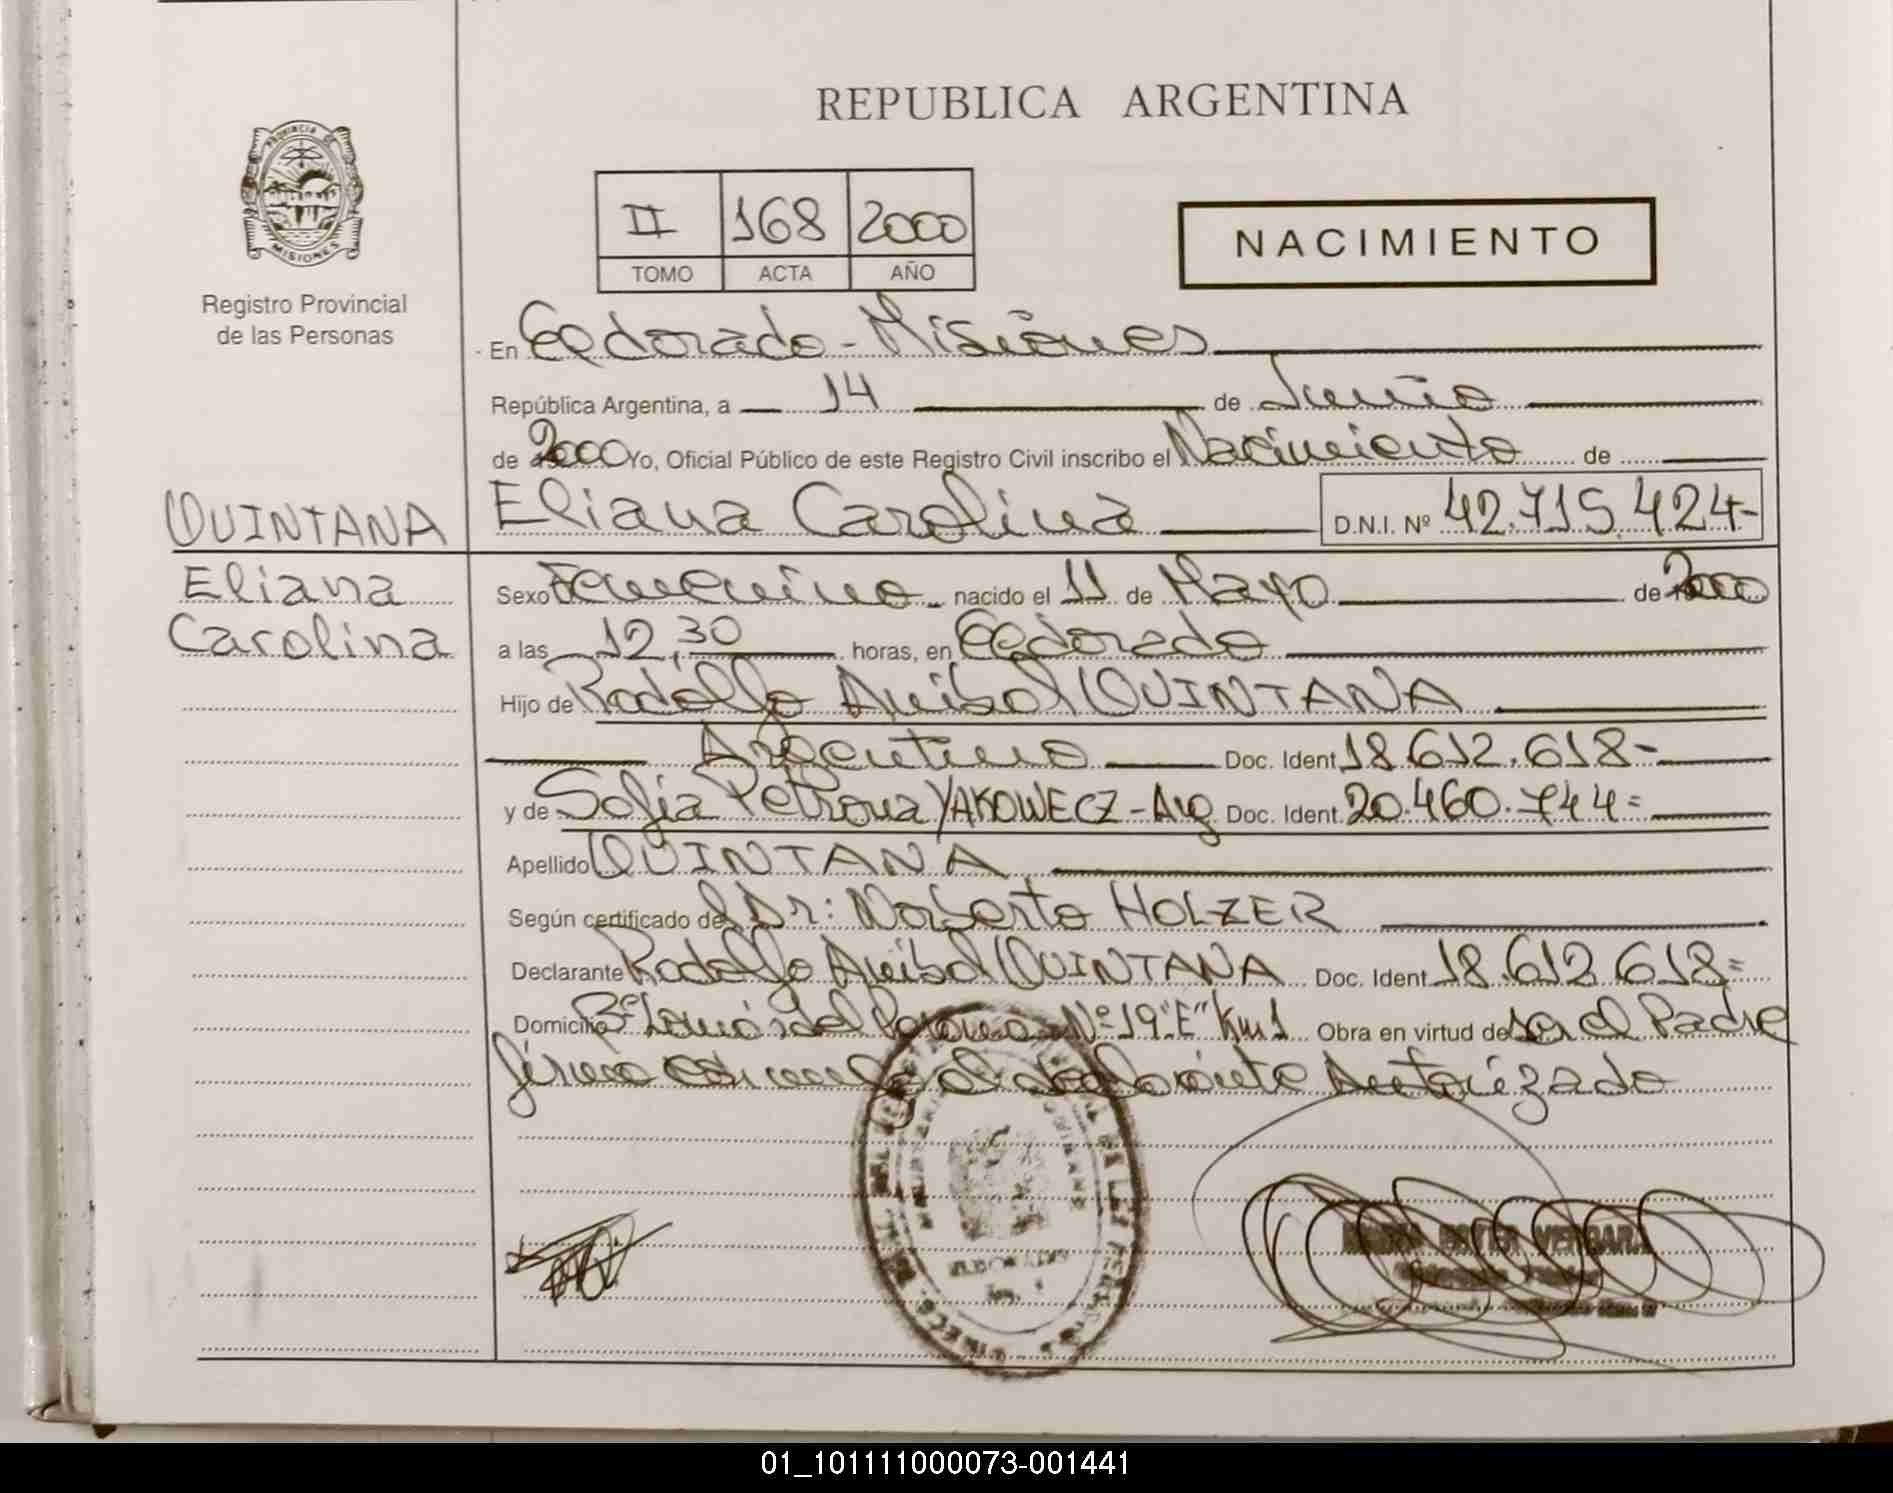 REPUBLICA ARGENTINA
PROVINCIA DE
MISIONES
Registro Provincial
de las Personas
II 168 2000
TOMO ACTA AÑO
NACIMIENTO
En Eldorado - Misiones
República Argentina, a 14 de Junio
de 2000 Yo, Oficial Público de este Registro Civil inscribo el Nacimiento de
QUINTANA
Eliana Carolina D.N.I. Nº 42.715.424-
Eliana
Carolina
Sexo Femenino nacido el 11 de Mayo de 2000
a las 12,30 horas, en Eldorado
Hijo de Rodolfo Anibal QUINTANA
Argentino Doc. Ident. 18.612.618-
y de Sofia Petrona YAKOWECZ - Arg Doc. Ident. 20.460.744=
Apellido QUINTANA
Según certificado del Dr: Norberto HOLZER
Declarante Rodolfo Anibal QUINTANA Doc. Ident. 18.612.618=
Domicilio Bº Lomas del Parana - Nº 19 "E" Km 1 Obra en virtud de ser el Padre
firma conmigo el declarante Autorizado
ELDORADO
VERGARA
01_101111000073-001441